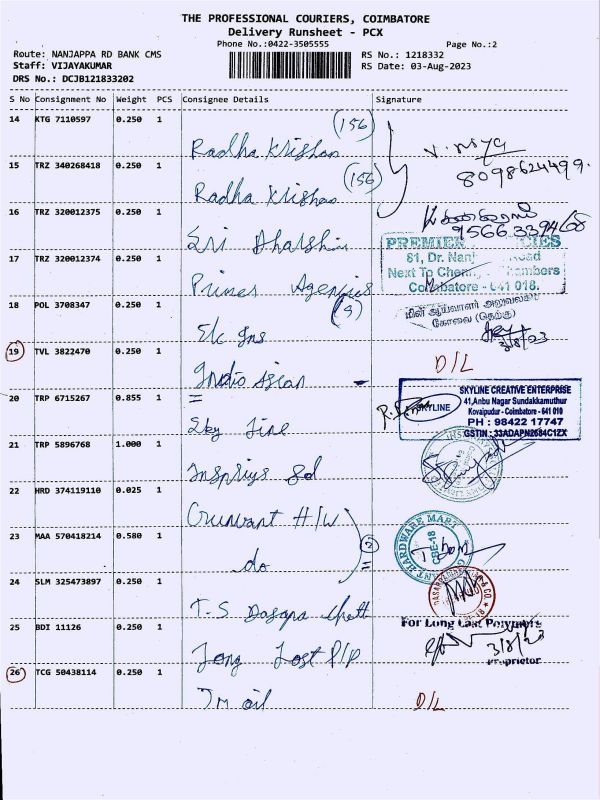 THE PROFESSIONAL COURIERS, COIMBATORE
Delivery Runsheet - PCX
Phone No.:0422-3505555
Page No.:2
Route: NANJAPPA RD BANK CMS
RS No.: 1218332
Staff: VIJAYAKUMAR
RS Date: 03-Aug-2023
DRS No.: DCJB121833202
S No Consignment No Weight PCS Consignee Details Signature
14 KTG 7110597 0.250 1
(156)
Radha Krishan
8098624499.
15 TRZ 340268418 0.250 1
(156)
Radha Krishan
16 TRZ 320012375 0.250 1
9566339468
Sri Dharshini
PREMIER
81, Dr.
Road
17 TRZ 320012374 0.250 1
Next To
Chambers
Agencies
Coimbatore - 641 018.
18 POL 3708347 0.250 1
(9)
மின் ஆய்வாளர் அலுவலகம்
கோவை (தெற்கு)
3/8/23
19 TVL 3822470 0.250 1
D/L
20 TRP 6715267 0.855 1
SKYLINE CREATIVE ENTERPRISE
SKYLINE
41,Anbu Nagar Sundakkamuthur
Kovaipudur - Coimbatore - 641 010
PH : 98422 17747
GSTIN : 33ADAPN2684C1ZX
Sky line
21 TRP 5896768 1.000 1
22 HRD 374119110 0.025 1
H/W
HARDWARE MART
CBE-18
23 MAA 570418214 0.580 1
(2)
do
24 SLM 325473897 0.250 1
T.S Dasapa
& CO.
25 BDI 11126 0.250 1
For Long Last Polymers
3/8/23
Proprietor
Long Lost P/P
26 TCG 50438114 0.250 1
oil
D/L